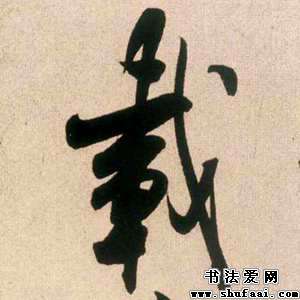 載
书法爱网
www.shufaai.com